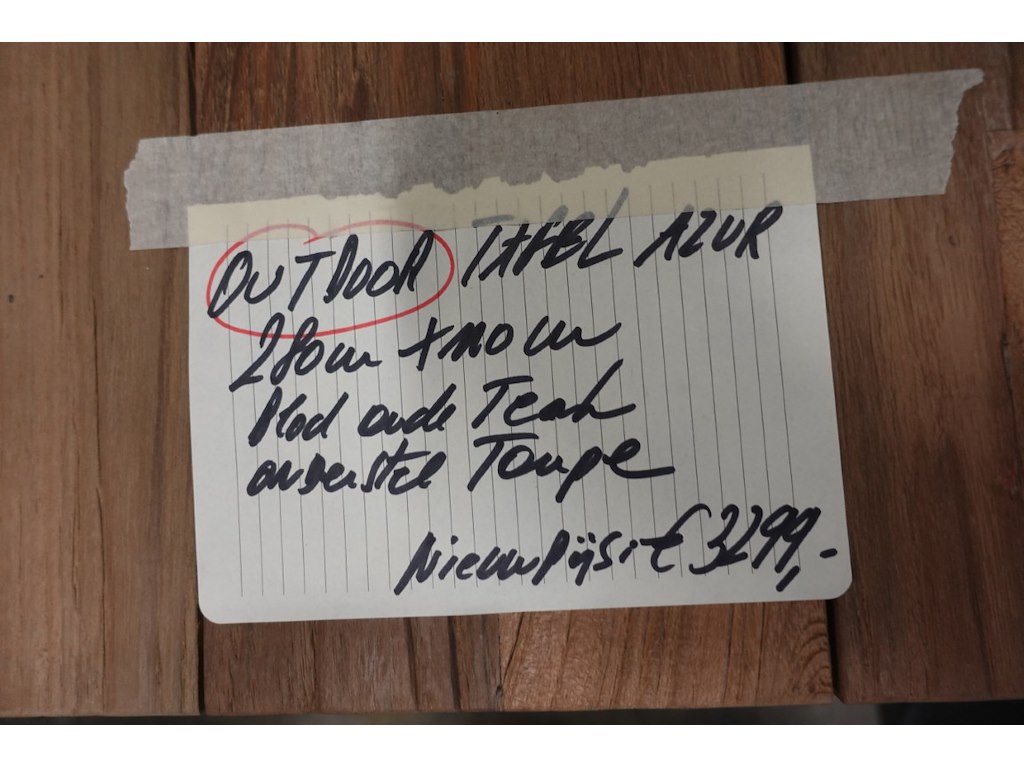 OUTDOOR TAFEL AZUR
280cm + 110 cm
Blad oude Teak
onderstel Taupe
Nieuwprijs: € 3299,-